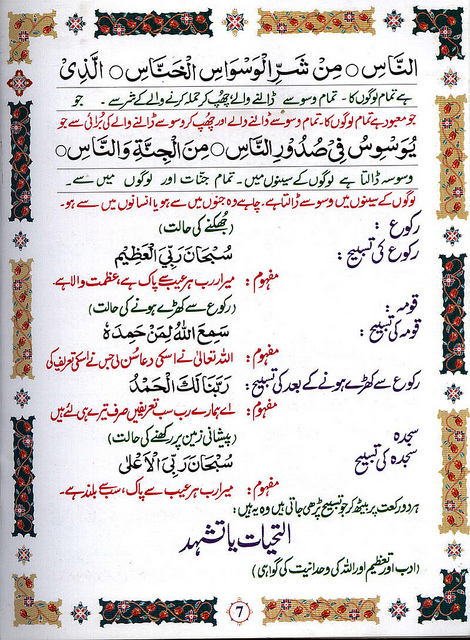 النَّاسِ ○ مِنْ شَرِّ الْوَسْوَاسِ الْخَنَّاسِ ○ الَّذِیْ
ہے تمام لوگوں کا۔ تمام وسوسے ڈالنے والے چھپ کر حملہ کرنے والے کے شر سے۔ جو
جو معبود ہے تمام لوگوں کا۔ تمام وسوسے ڈالنے والے اور چھپ کر وسوسے ڈالنے والے کی بُرائی سے جو
یُوَسْوِسُ فِیْ صُدُوْرِ النَّاسِ ○ مِنَ الْجِنَّةِ وَالنَّاسِ ○
وسوسہ ڈالتا ہے لوگوں کے سینوں میں۔ تمام جنّات اور لوگوں میں سے۔
لوگوں کے سینوں میں وسوسے ڈالتا ہے۔ چاہے وہ جنوں میں سے ہو یا انسانوں میں سے ہو۔
رکوع : (جُھکنے کی حالت)
رکوع کی تسبیح : سُبْحَانَ رَبِّیَ الْعَظِیْم
مفہوم : میرا رب ہر عیب سے پاک ہے، عظمت والا ہے۔
قومہ : (رکوع سے کھڑے ہونے کی حالت)
قومہ کی تسبیح : سَمِعَ اللّٰهُ لِمَنْ حَمِدَهٗ
مفہوم : اللہ تعالیٰ نے اسکی دعا سُن لی جس نے اسکی تعریف کی
رکوع سے کھڑے ہونے کے بعد کی تسبیح : رَبَّنَا لَكَ الْحَمْدُ
مفہوم : اے ہمارے رب سب تعریفیں صرف تیرے ہی لئے ہیں
سجدہ (پیشانی زمین پر رکھنے کی حالت)
سجدہ کی تسبیح سُبْحَانَ رَبِّیَ الْاَعْلٰی
مفہوم : میرا رب ہر عیب سے پاک، سب سے بلند ہے۔
ہر دو رکعت پر بیٹھ کر جو تسبیح پڑھی جاتی ہیں وہ یہ ہیں :
التحیات یا تشہد
(ادب اور تعظیم اور اللہ کی وحدانیت کی گواہی)
7